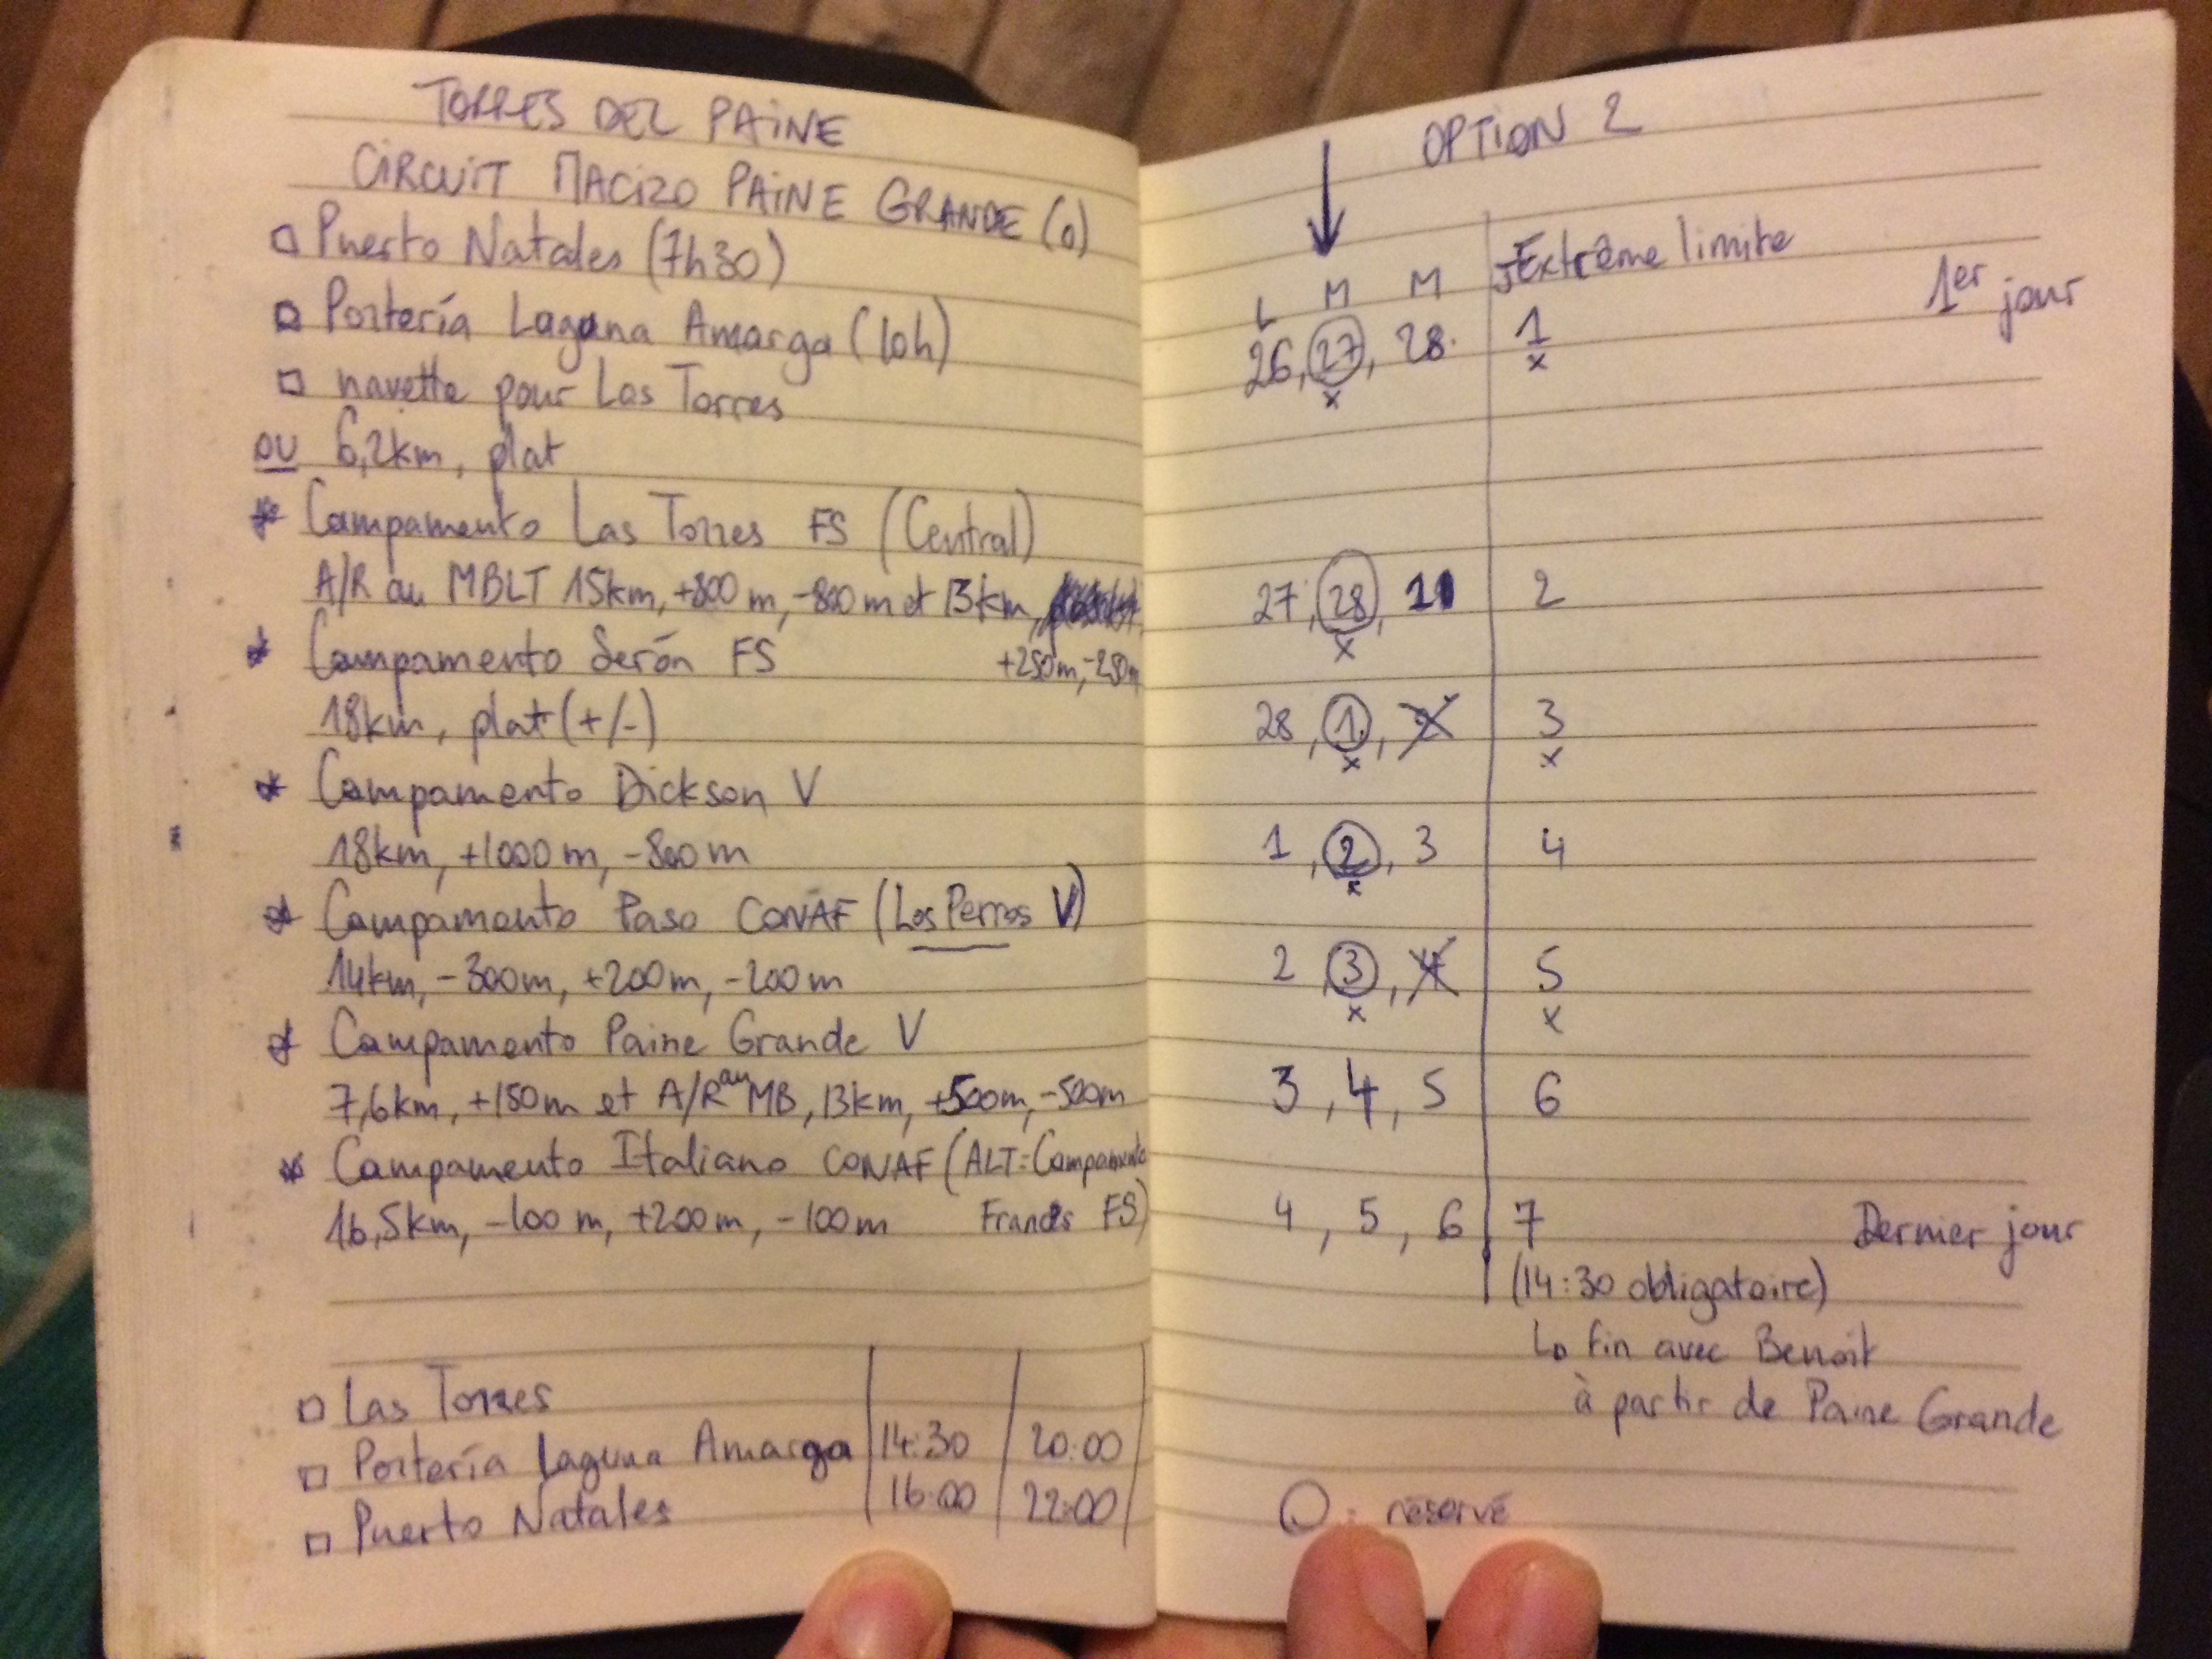 TORRES DEL PAINE
CIRCUIT MACIZO PAINE GRANDE (O)
Puerto Natales (7h30)
Portería Laguna Amarga (10h)
navette pour Las Torres
OU 6,2km, plat
* Campamento Las Torres FS (Central)
A/R au MBLT 15km, +800m, -800m et 13km,
+250m, -250m
* Campamento Serón FS
18km, plat (+/-)
* Campamento Dickson V
18km, +1000m, -800m
* Campamento Paso CONAF (Los Perros V)
14km, -300m, +200m, -200m
* Campamento Paine Grande V
7,6km, +150m et A/R au MB, 13km, +500m, -500m
* Campamento Italiano CONAF (ALT: Campamento
Francés FS)
16,5km, -100m, +200m, -100m
Las Torres
Portería Laguna Amarga 14:30 20:00
Puerto Natales 16:00 22:00
OPTION 2
L M M Extrême limite
1er jour
26, 27, 28 1
x x
27, 28, 1 2
x
28, 1, 2 3
x x
1, 2, 3 4
x
2 3, 4 5
x x
3, 4, 5 6
4, 5, 6 7 Dernier jour
(14:30 obligatoire)
↳ fin avec Benoit
à partir de Paine Grande
O : réservé